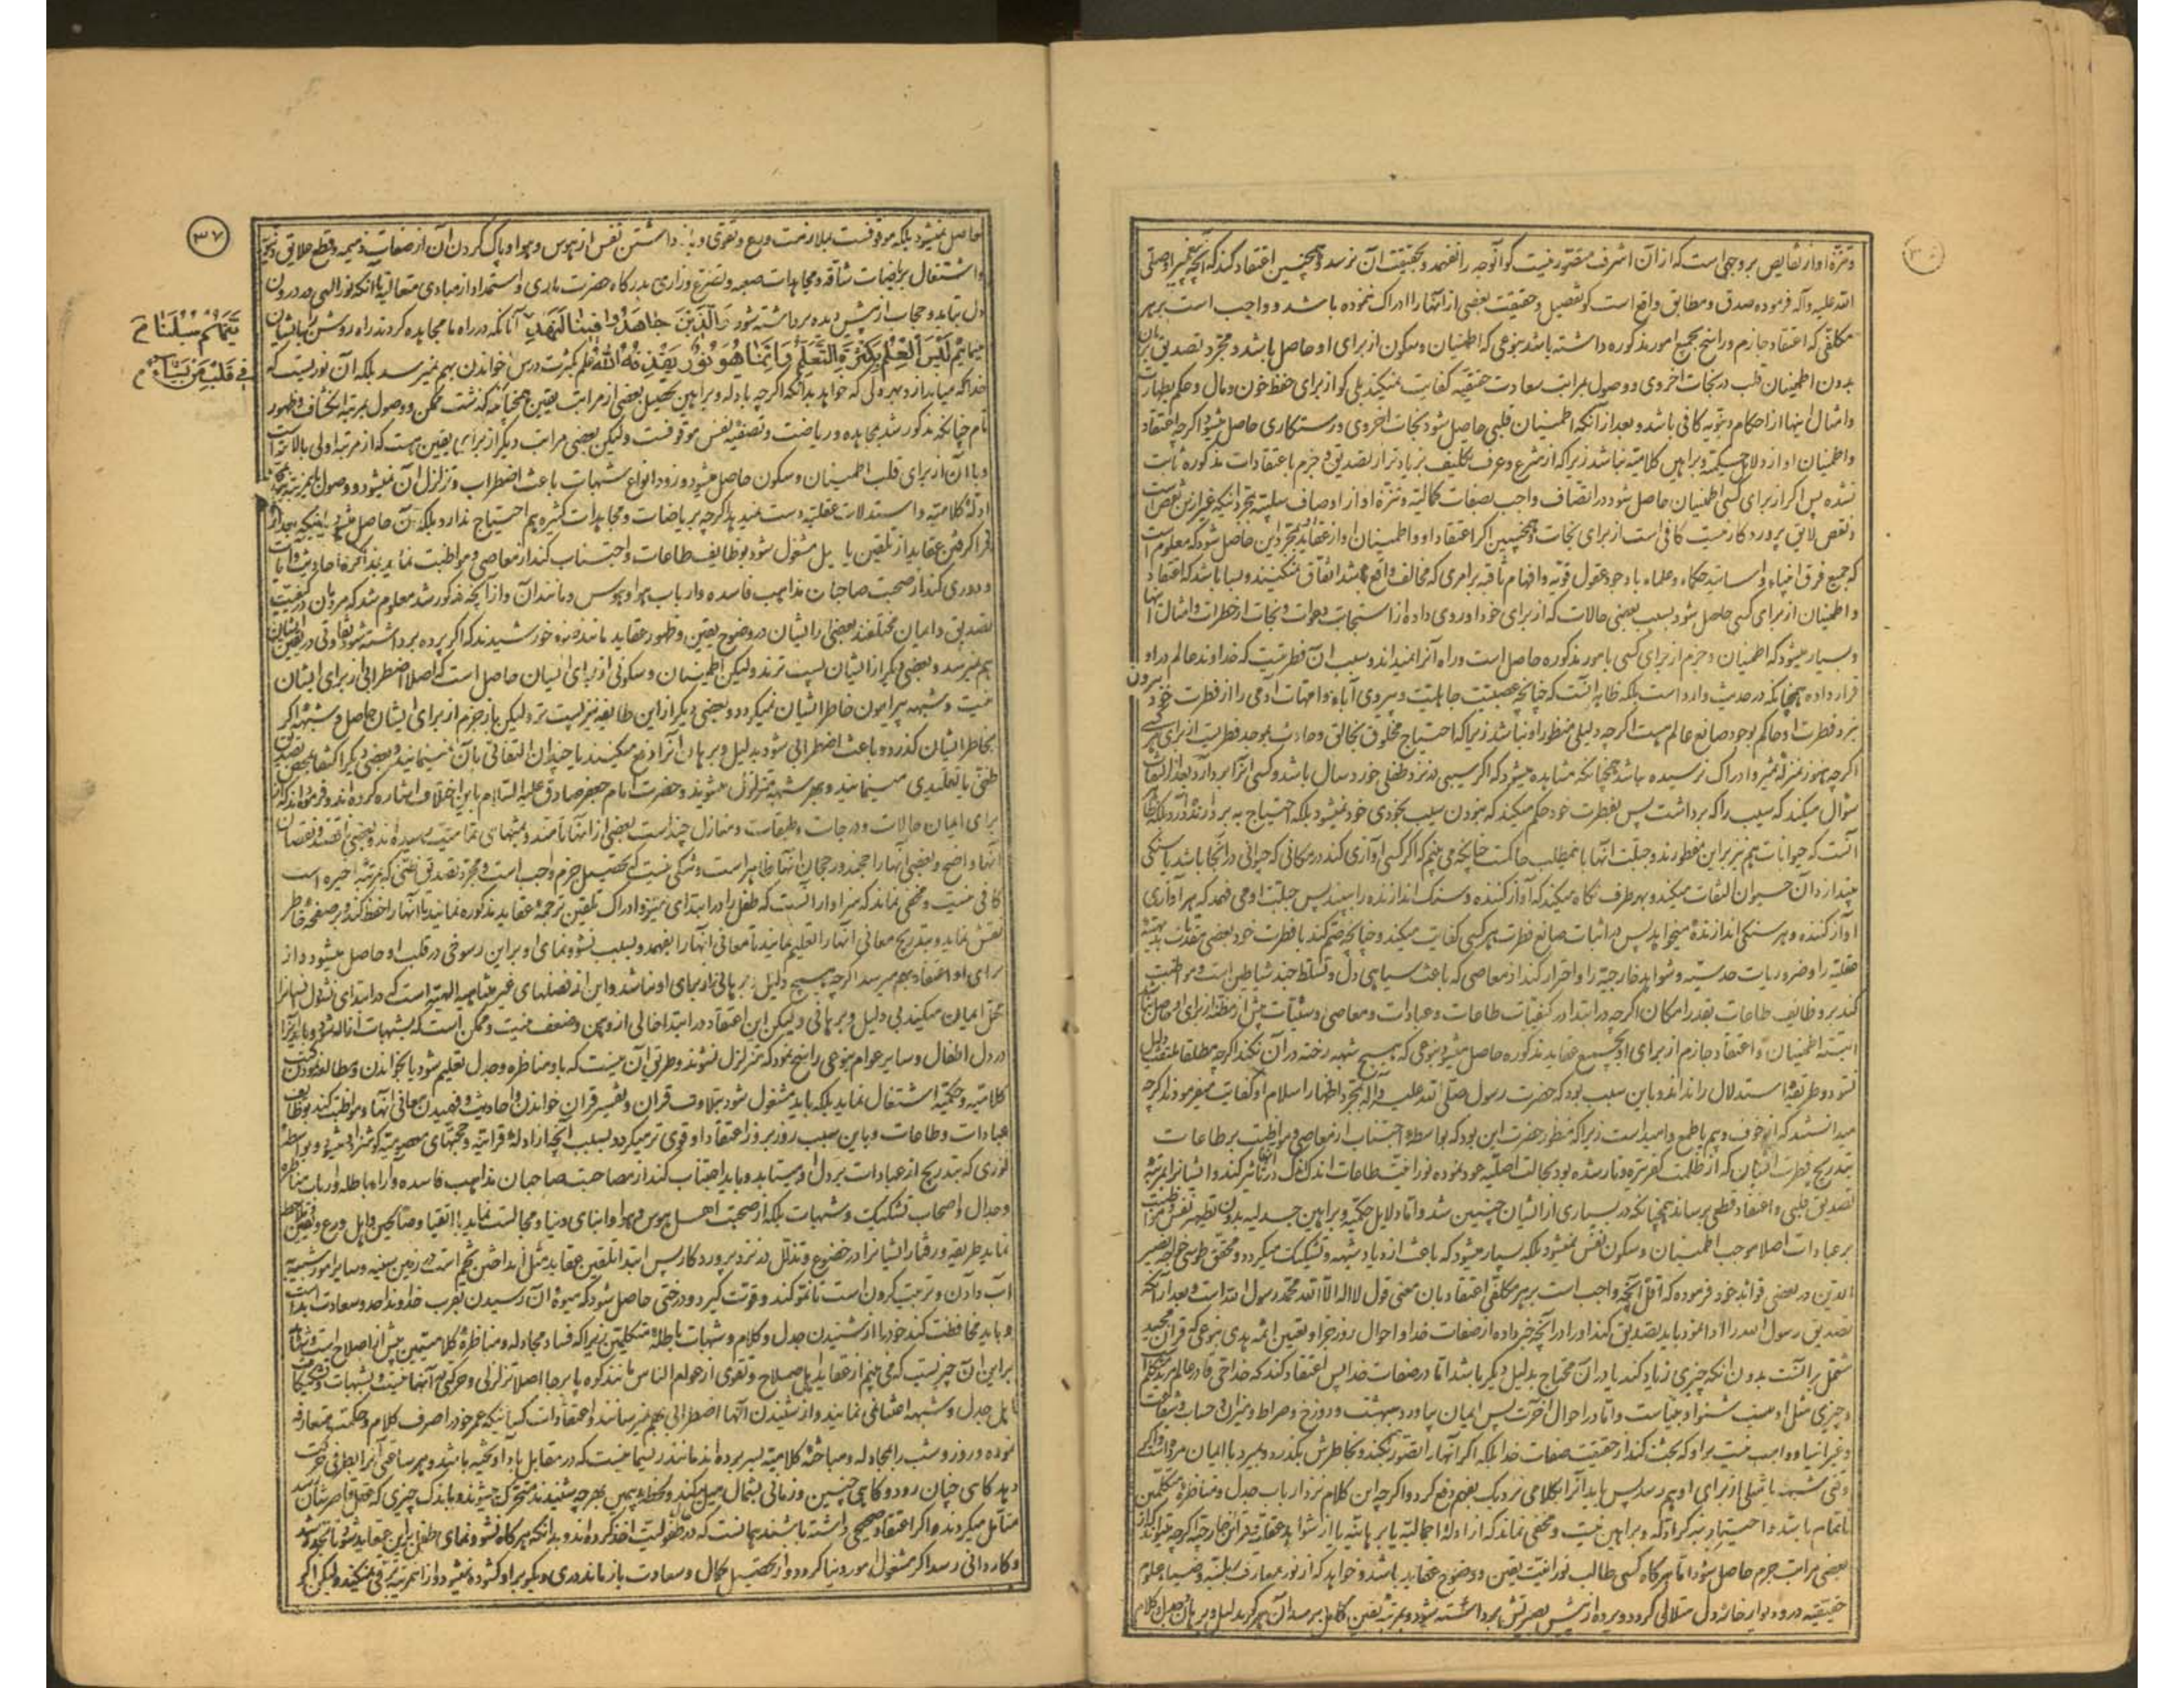 و تنزه او از نقایص بر وجهی است که از آن اشرف متصور نیست گو آنوجه را نفهمد و بحقیقت آن نرسد و همچنین اعتقاد کند که آنچه پیغمبر او صلی
الله علیه و آله فرموده صدق و مطابق واقع است گو تفصیل و حقیقت بعضی از آنها را ادراک ننموده باشد و واجب است بر هر
مکلفی که اعتقاد جازم و راسخ بجمیع امور مذکوره داشته باشد بنوعی که اطمینان و سکون از برای او حاصل باشد و مجرد تصدیق بزبان
بدون اطمینان قلب در نجات اخروی و وصول بمراتب سعادت حقیقیه کفایت نمیکند بلی گو از برای حفظ خون و مال و حکم بطهارت
و امثال اینها از احکام دنیویه کافی باشد و بعد از آنکه اطمینان قلبی حاصل شود نجات اخروی و رستگاری حاصل میشود اگرچه اعتقاد
و اطمینان او از دلایل حکمیه و براهین کلامیه نباشد زیرا که از شرع و عرف تکلیف زیادتر از تصدیق و جزم باعتقادات مذکوره ثابت
نشده پس اگر از برای کسی اطمینان حاصل شود در اتصاف واجب بصفات کمالیه و تنزه او از اوصاف سلبیه بمجرد اینکه غیر از این نقص است
و نقص لایق پروردگار نیست کافی است از برای نجات و همچنین اگر اعتقاد او و اطمینان او از عقاید بمجرد این حاصل شود که معلوم است
که جمیع فرق انبیاء و اساتید حکماء و علماء با وجود عقول قویه و افهام ثاقبه بر امری که مخالف واقع باشد اتفاق نمیکنند و بسا باشد که اعتقاد
و اطمینان از برای کسی حاصل شود بسبب بعضی حالات که از برای خود او روی داده از استجابت دعوات و نجات از خطرات و امثال آنها
و بسیار میشود که اطمینان و جزم از برای کسی بامور مذکوره حاصل است و راه آنرا نمیداند و سبب آن فطرتیست که خداوند عالم در او
قرار داده همچنانکه در حدیث وارد است بلکه ظاهر آنست که چنانچه عصبیت جاهلیت و پیروی آباء و امهات آدمی را از فطرت خود بیرون
نبرد فطرت او حاکم بوجود صانع عالم هست اگرچه دلیلی منظور او نباشد زیرا که احتیاج مخلوق بخالق و حادث بموجد فطریست از برای هر کسی
اگرچه هنوز بمنزله تمیز و ادراک نرسیده باشد همچنانکه مشاهده میشود که اگر سیبی در نزد طفلی خورد سال باشد و کسی آنرا بردارد بعد از التفات
سؤال میکند که سیب را که برداشت پس بفطرت خود حکم میکند که نبودن سیب بخودی خود نمیشود بلکه احتیاج به بردارنده دارد بلکه ظاهر
آنست که حیوانات هم نیز بر این مفطورند و جبلت آنها باین مطلب حاکمست چنانچه می بینم که اگر کسی آوازی کند در مکانی که حیوانی در آنجا باشد یا سنگی
بیندازد آن حیوان التفات میکند و بهر طرف نگاه میکند که آواز کننده و سنگ اندازنده را ببیند پس جبلت او می فهمد که هر آوازی
آواز کننده و هر سنگی اندازنده میخواهد پس در اثبات صانع فطرت هر کسی کفایت میکند و چنانچه ضم کند با فطرت خود بعضی مقدمات بدیهیه
عقلیه را و ضروریات حدسیه و شواهد خارجیه را و احتراز کند از معاصی که باعث سیاهی دل و تسلط جند شیاطین است و مواظبت
کند بر وظایف طاعات بقدر امکان اگرچه در ابتدا در کیفیات طاعات و عبادات و معاصی و سیئات پیش از مظنه از برای او حاصل نباشد
البته اطمینان و اعتقاد جازم از برای او بجمیع عقاید مذکوره حاصل میشود بنوعی که هیچ شبهه رخنه در آن نکند اگرچه مطلقا ملتفت دلیل
نشود و طریقه استدلال را نداند و باین سبب بود که حضرت رسول صلی الله علیه و آله بمجرد اظهار اسلام او کفایت میفرمودند اگرچه
میدانستند که از خوف و بیم یا طمع و امید است زیرا که منظور حضرت این بود که بواسطه اجتناب از معاصی و مواظبت بر طاعات
بتدریج فطرت ایشان که از ظلمت کفر تیره و تار شده بود بحالت اصلیه عود نموده نورانیت طاعات اندک اندک در آنها تأثیر کند و ایشانرا بمرتبه
تصدیق قلبی و اعتقاد قطعی برساند همچنانکه در بسیاری از ایشان چنین شد و اما دلایل حکمیه و براهین جدلیه بدون تطهیر نفس و مواظبت
بر عبادات اصلا موجب اطمینان و سکون نفس نمیشود بلکه بسیار میشود که باعث ازدیاد شبهه و تشکیک میگردد و محقق طوسی خواجه نصیر
الدین در بعضی فوائد خود فرموده که اقل آنچه واجب است بر هر مکلفی اعتقاد بان معنی قول لا اله الا الله محمد رسول الله است و بعد از آنکه
تصدیق رسول الله را ادا نمود باید تصدیق کند او را در آنچه خبر داده از صفات خدا و احوال روز جزا و تعیین ائمه هدی بنوعی که قرآن مجید
مشتمل بر آنست بدون آنکه چیزی زیاد کند یا در آن محتاج بدلیل دیگر باشد اما در صفات خدا پس اعتقاد کند که خدا حی قادر عالم مرید متکلم است
و چیزی مثل او نیست شنوا و بیناست و اما در احوال آخرت پس ایمان بیاورد ببهشت و دوزخ و صراط و میزان و حساب و شفاعت
و غیر اینها و واجب نیست بر او که بحث کند از حقیقت صفات خدا بلکه اگر آنها را تصور نکند و بخاطرش نگذرد و بمیرد با ایمان مرده است و اگر
وقتی شبهه یا شکی از برای او بهم رسد پس باید آنرا بکلامی نزدیک بفهم دفع کرد و اگرچه این کلام نزد ارباب جدل و مناظره و متکلمین
ناتمام باشد و احتیاج بذکر ادله و براهین نیست و مخفی نماند که از ادله اجمالیه یا برهانیه یا از شواهد عقلیه و قرائن خارجیه اگرچه میتواند که از
بعضی مراتب جزم حاصل شود اما هرگاه کسی طالب نورانیت یقین و وضوح عقاید باشد و خواهد که از نور معارف یقینیه و ضیاء علوم
حقیقیه در و دیوار خانه دل متلالی گردد و پرده از پیش بصیرتش برداشته شود و بمرتبه یقین کامل برسد آن بهرگونه دلیل و برهان و جدل و کلام
٣٧
حاصل نمیشود بلکه موقوفست بملازمت ورع و تقوی و باز داشتن نفس از هوس و هوا و پاک کردن آن از صفات ذمیمه و قطع علایق دنیویه
و اشتغال بریاضات شاقه و مجاهدات صعبه و تضرع و زاری بدرگاه حضرت باری و استمداد از مبادی متعالیه تا آنکه نور الهی در درون
دل بتابد و حجاب از پیش دیده برداشته شود وَالَّذینَ جاهَدُوا فینا لَنَهْدِیَ آنانکه در راه ما مجاهده کردند راه روشن را بایشان
یَنَّهُمْ سُبُلَنا م
مینمائیم لَیْسَ الْعِلْمُ بِکَثْرَةِ التَّعَلُّمِ وَ اِنَّما هُوَ نُورٌ یَقْذِفُهُ اللهُ علم بکثرت درس خواندن بهم نمیرسد بلکه آن نوریست که
فی قَلْبِ مَنْ یَشاءُ م
خدا که میاندازد بهر دلی که خواهد بدانکه اگرچه با دله و براهین تحصیل بعضی از مراتب یقین همچنانکه گذشت ممکن و وصول بمرتبه انکشاف و ظهور
تام چنانکه مذکور شد بمجاهده و ریاضت و تصفیه نفس موقوفست ولیکن بعضی مراتب دیگر از برای یقین هست که از مرتبه اولی بالاتر است
و با آن از برای قلب اطمینان و سکون حاصل میشود و زود انواع شبهات باعث اضطراب و تزلزل آن نمیشود و وصول باین مرتبه بمحض
ادله کلامیه و استدلالات عقلیه دست ندهد اگرچه بریاضات و مجاهدات کثیره هم احتیاج ندارد بلکه آن حاصل میشود باینکه بعد از
فرا گرفتن عقاید از تلقین یا دلیل مشغول شود بوظایف طاعات و اجتناب کند از معاصی و مواظبت نماید بمذاکره احادیث و آیات
و دوری کند از صحبت صاحبان مذاهب فاسده و ارباب هوا و هوس و مانند آن و از آنچه مذکور شد معلوم شد که مردمان در کیفیت
تصدیق و ایمان مختلفند بعضی از ایشان در وضوح یقین و ظهور عقاید مانند ضوء خورشیدند که اگر پرده برداشته شود تفاوتی در یقین ایشان
بهم نمیرسد و بعضی دیگر از ایشان پست ترند ولیکن اطمینان و سکونی از برای ایشان حاصل است که اصلا اضطرابی از برای ایشان
نیست و شبهه پیرامون خاطر ایشان نمیگردد و بعضی دیگر از این طایفه نیز پست تر ولیکن باز جزم از برای ایشان حاصل و شبهه اگر
بخاطر ایشان گذرد و باعث اضطرابی شود بدلیل و برهان آنرا دفع میکنند یا چندان التفاتی بآن نمینمایند و بعضی دیگر اکتفا بمحض تصدیق
ظنی یا تقلیدی مینمایند و بهر شبهه متزلزل میشوند و حضرت امام جعفر صادق علیه السلام باین اختلاف اشاره کرده اند و فرموده اند که از
برای ایمان حالات و درجات و طبقات و منازل چند است بعضی از آنها تامند و بمنتهای تمامیت رسیده اند و بعضی ناقصند و نقصان
آنها واضح و بعضی آنها راجحند و رجحان آنها ظاهر است و شکی نیست که تحصیل جزم واجب است و مجرد تصدیق ظنی که مرتبه اخیره است
کافی نیست و مخفی نماند که سزاوار آنست که طفل را در ابتدای تمیز و ادراک تلقین ترجمه عقاید مذکوره نمایند تا آنها را حفظ کند و بر صفحه خاطر
نقش نماید و بتدریج معانی آنها را تعلیم نمایند تا معانی آنها را بفهمد و بسبب نشو و نمای او بر این رسوخی در قلب او حاصل میشود و از
برای او اعتقاد بهم میرسد اگرچه هیچ دلیل و برهانی از برای او نباشد و این از فضلهای غیر متناهیه الهیه است که در ابتدای نشو دل انسان را
محل ایمان میکند بی دلیل و برهانی ولیکن این اعتقاد در ابتدا خالی از وهن و ضعف نیست و ممکن است که بشبهات ازاله شود و باید آنرا
در دل اطفال و سایر عوام بنوعی راسخ نمود که متزلزل نشوند و طریق آن نیست که باو مناظره و جدل تعلیم شود یا بخواندن و مطالعه نمودن کتب
کلامیه و حکمیه اشتغال نماید بلکه باید مشغول شود بتلاوت قرآن و تفسیر قرآن خواندن و احادیث و فهمیدن معانی آنها و مواظبت کند بوظایف
عبادات و طاعات و باین سبب روز بروز اعتقاد او قوی تر میگردد بسبب آنچه از ادله قرآنیه و حجتهای معصومیه گوشزد او میشود و بواسطه
نوری که بتدریج از عبادات بر دل او میتابد و باید اجتناب کند از مصاحبت صاحبان مذاهب فاسده و آراء باطله و ارباب مناظره
و جدال و اصحاب تشکیک و شبهات بلکه از صحبت اهل هوس و هوا و ابنای دنیا و مجالست نماید با اتقیا و صالحین و اهل ورع و یقین و ملاحظه
نماید طریقه و رفتار ایشانرا در خضوع و تذلل در نزد پروردگار پس ابتدا تلقین عقاید مثل انداختن تخم است در زمین سینه و سایر امور بمنزله
آب دادن و تربیت کردن است تا نمو کند و قوت گیرد و درختی حاصل شود که میوه آن رسیدن بقرب خداوند احد و سعادت ابد است
و باید محافظت کند خود را از شنیدن جدل و کلام و شبهات باطله متکلمین زیرا که فساد مجادله و مناظره کلامیین بیش از اصلاح است و شاهد
بر این آن چیزیست که می بینم از عقاید اهل صلاح و تقوی از عوام الناس مانند کوه پا برجا اصلا تزلزلی و حرکتی در آنها نیست بشبهات و تشکیکات
اهل جدل و شبهه اعتنائی نمایند و از شنیدن آنها اضطرابی بهم نمیرسانند و اعتقادات کسانیکه عمر خود را صرف کلام و حکمت متعارفه
نموده و روز و شب را بمجادله و مباحثه کلامیه بسر برده اند مانند ریسمانیست که در مقابل باد آویخته باشد و هر ساعتی آنرا بطرفی حرکت
دهد گاهی چنان رود و گاهی چنین و زمانی بشمال میل کند و لحظه به یمین بهر چه شنیدند متحرک میشوند و باندک چیزی که عقل قاصرشان رسد
متأمل میگردند و اگر اعتقاد صحیحی داشته باشند همانست که در طفولیت اخذ کرده اند و بدانکه هرگاه نشو و نمای طفل بر این عقاید شود تا بحد رشد
و کاردانی رسد اگر مشغول امور دنیا گردد و از تحصیل کمال و سعادت باز ماند دری دیگر بر او گشوده نمیشود و از آن مرتبه ترقی نمیکند ولیکن اگر